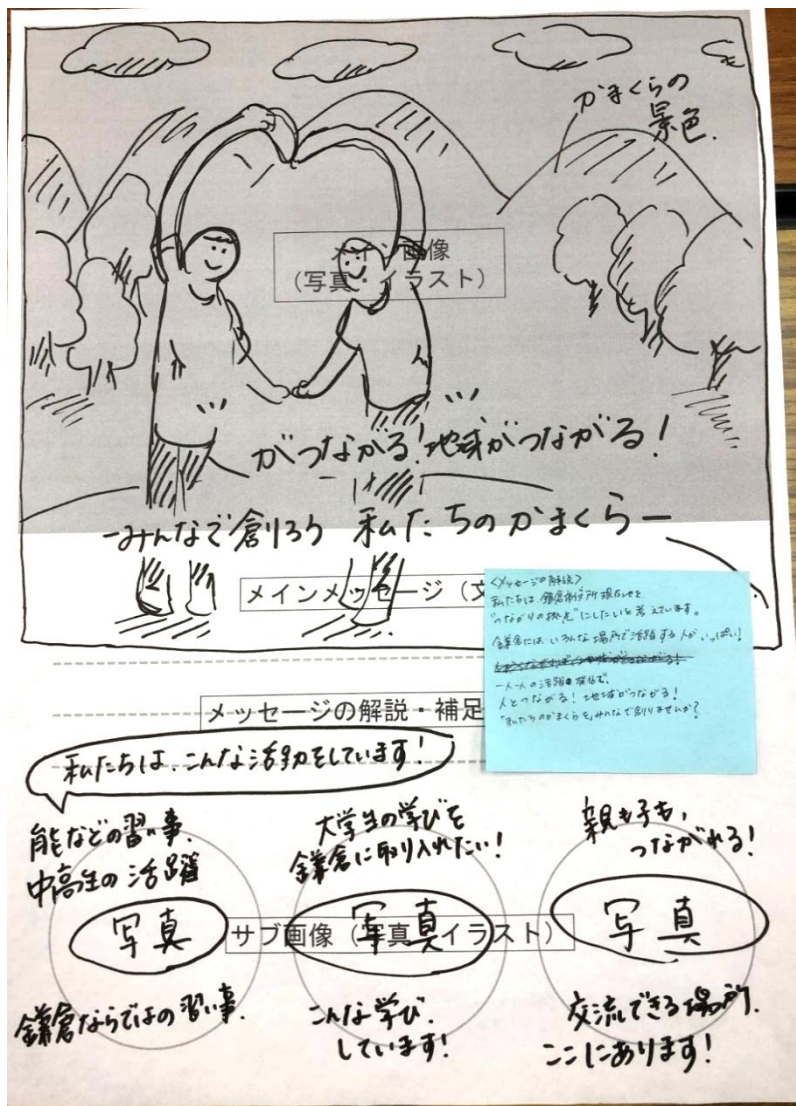 かまくらの
景色.
メイン画像
(写真・イラスト)
がつながる!地球がつながる!
ーみんなで創ろう 私たちのかまくらー
メインメッセージ(文
<メッセージの解説>
私たちは、鎌倉市役所現在地を
"つながりの拠点"にしたいと考えています。
鎌倉には、いろんな場所で活躍する人がいっぱい!
一人一人の活躍
人とつながる!地球がつながる!
"私たちのかまくら"を、みんなで創りませんか?
メッセージの解説・補足
私たちは、こんな活動をしています!
能などの習い事.
中高生の活躍
大学生の学びを
鎌倉に取り入れたい!
親も子も,
つながれる!
写真
写真
写真
サブ画像(写真・イラスト)
鎌倉ならではの習い事.
こんな学び.
しています!
交流できる場所.
ここにあります!